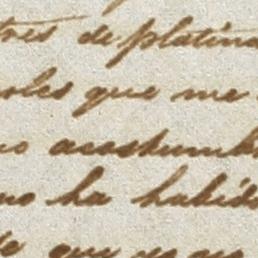 tres de platina
oles que me
no acostumb
no ha habido
que es